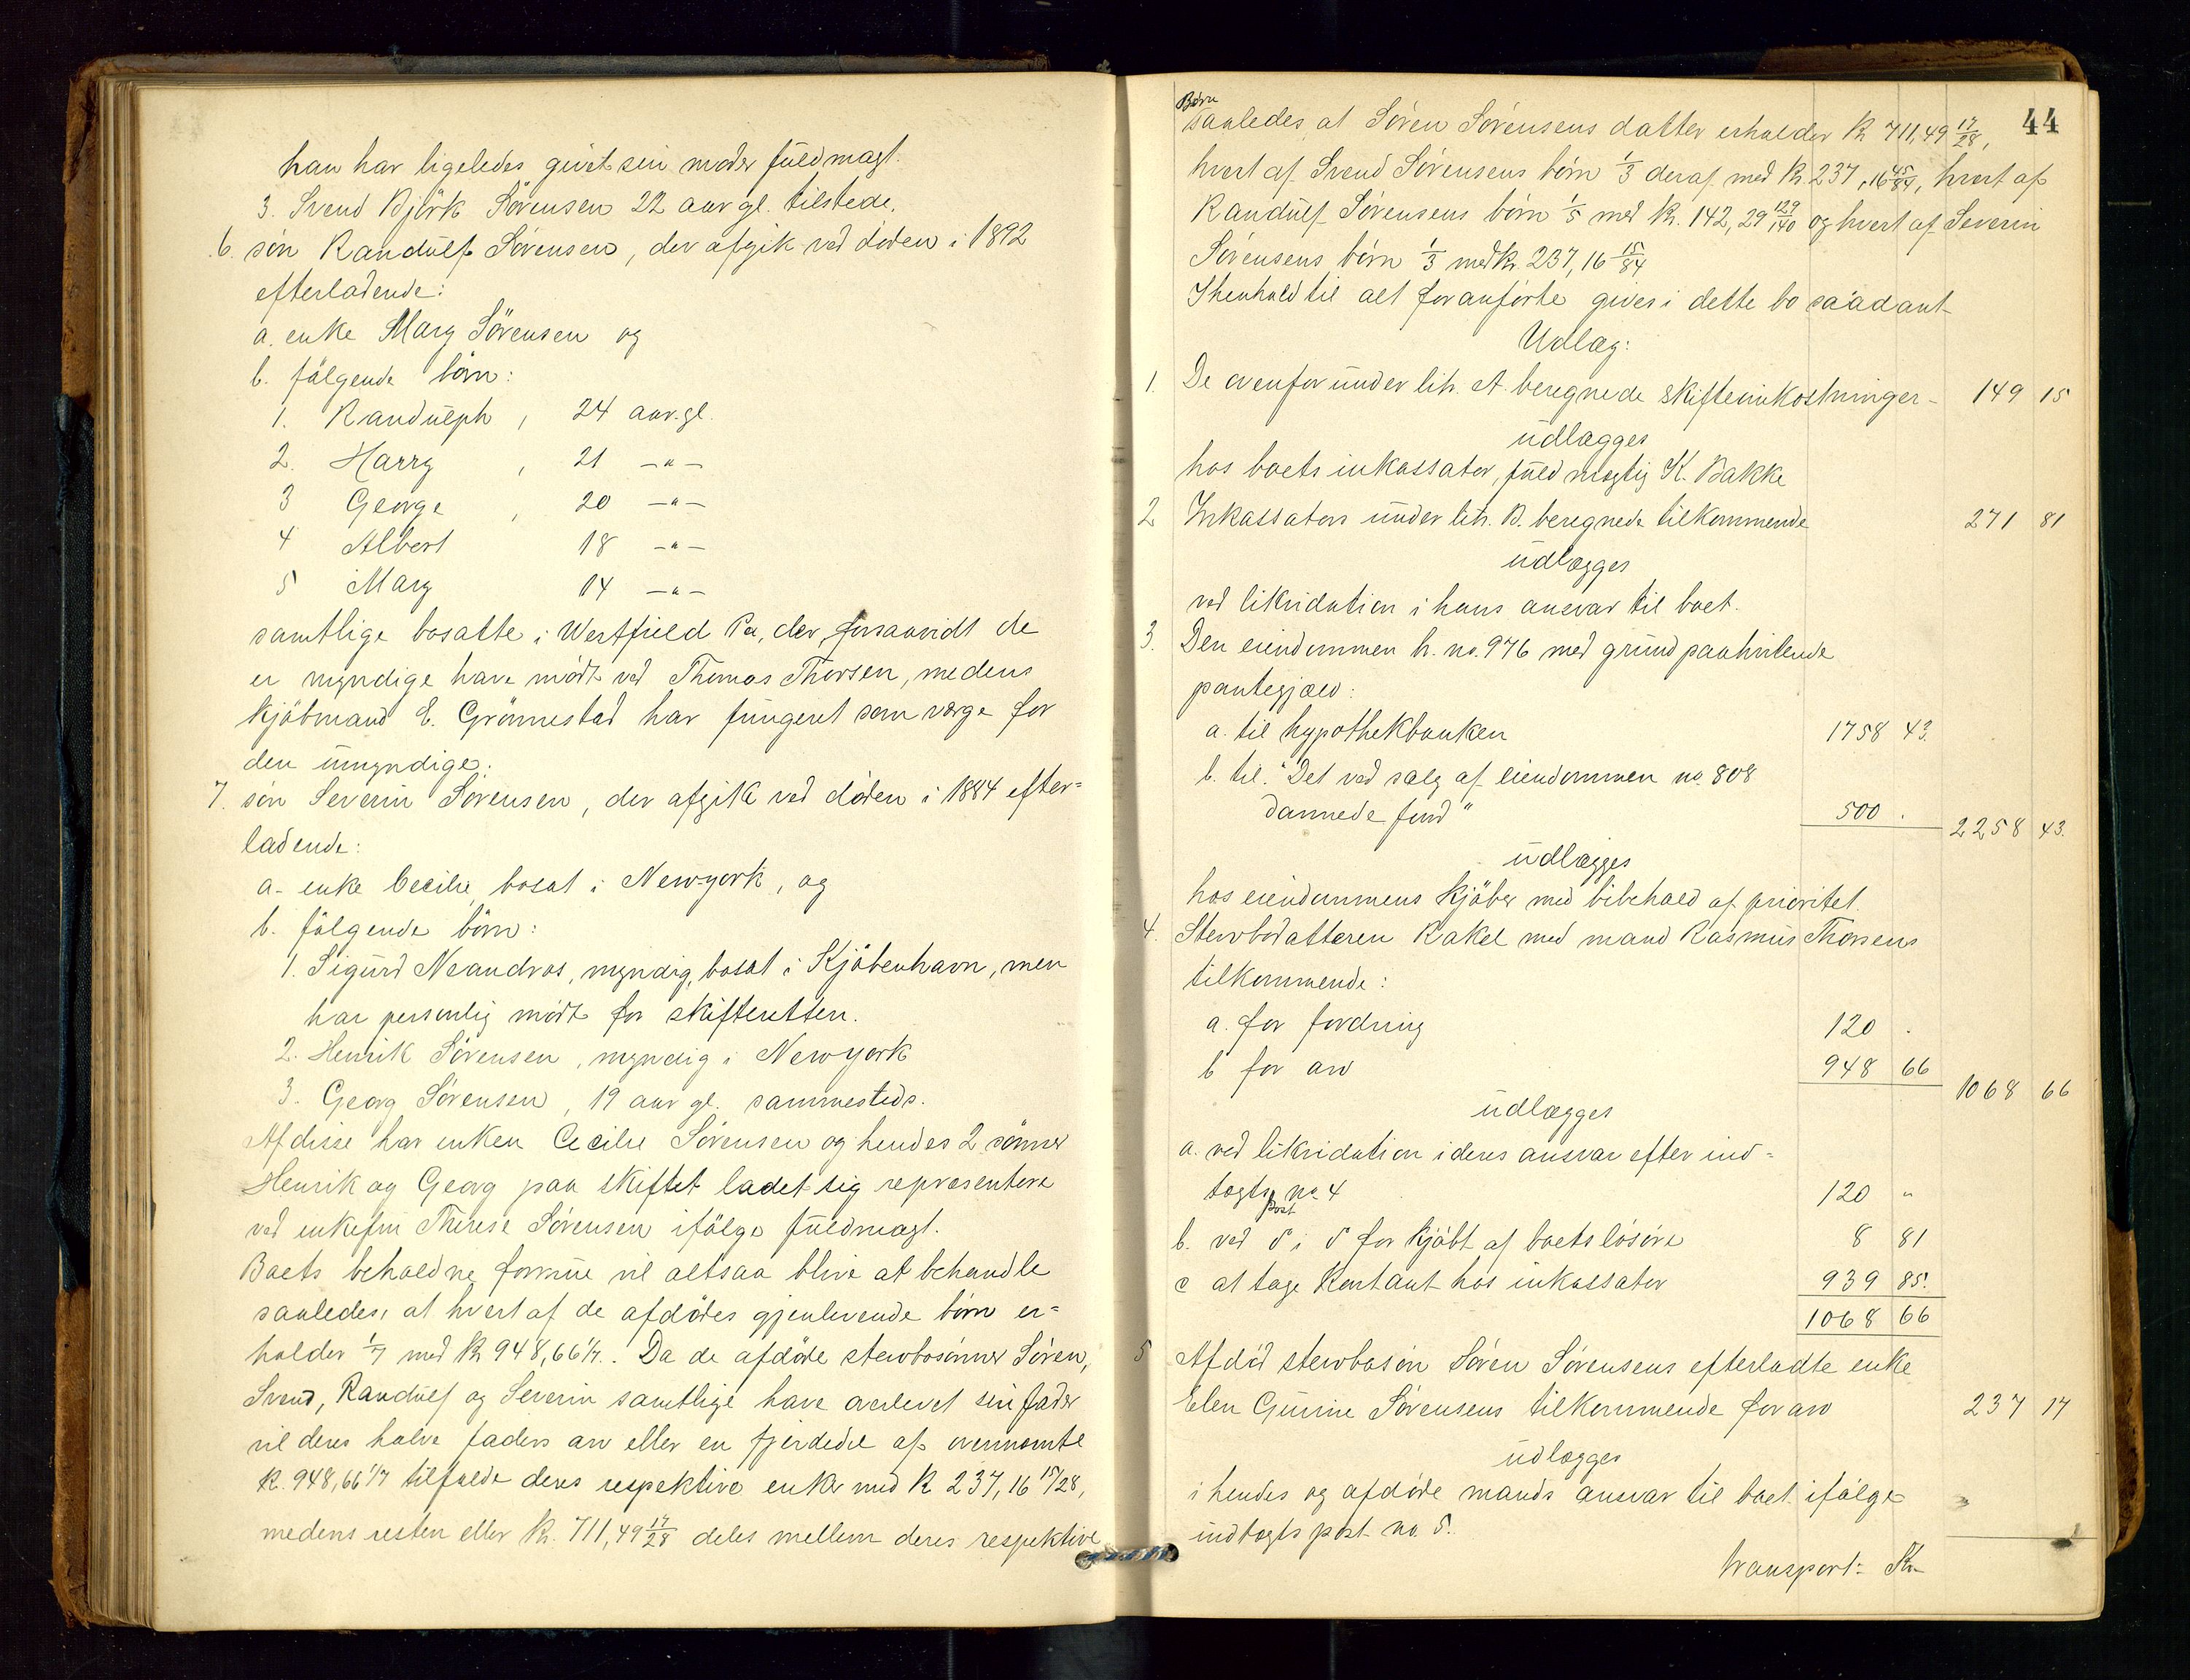 han har ligeledes givet sin moder fuldmagt.
3. Svend Björk Sörensen 22 aar gl. tilstede.
6. søn Randulf Sørensen, der afgik ved døden i 1892
efterladende:
a. enke Mary Sörensen og
b. fölgende börn:
1. Randulph, 24 aar gl.
2. Harry, 21 —"—
3 George, 20 —"—
4 Albert 18 —"—
5 Mary 14 —"—
samtlige bosatte i Westfield Pa, der, forsaavidt de
er myndige have mødt ved Thomas Thorsen, medens
kjöbmand E. Grönnestad har fungeret som værge for
den umyndige.
7. søn Severin Sørensen, der afgik ved döden i 1884 efter=
ladende:
a. enke Cecilie, bosat i Newyork, og
b. fölgende börn:
1. Sigurd Neandros, myndig, bosat i Kjöbenhavn, men
har personlig mødt for skifteretten.
2. Henrik Sørensen, myndig i Newyork
3. Georg Sørensen, 19 aar gl. sammesteds.
Af disse har enken Cecilie Sørensen og hendes 2 sønner
Henrik og Georg paa skiftet ladet sig repræsentere
ved enkefru Therese Sörensen ifölge fuldmagt.
Boets beholdne formue vil altsaa blive at behandle
saaledes, at hvert af de afdödes gjenlevende børn er=
holder 1/7 med Kr 948,66 1/7. Da de afdöde stervbosønner Søren,
Svend, Randulf og Severin samtlige have overlevet sin fader
vil deres halve faders arv eller en fjerdedel af ovennævnte
Kr. 948,66 1/7 tilfalde deres respektive enker med Kr 237,16 15/28,
medens resten eller Kr. 711,49 17/28 deles mellem deres respektive
44
Børn
saaledes, at Søren Sørensens datter erholder Kr 711,49 17/28,
hvert af Svend Sørensens börn 1/3 deraf med Kr. 237,16 45/84, hvert af
Randulf Sørensens børn 1/5 med Kr. 142,29 129/140 og hvert af Severin
Sørensens børn 1/3 med Kr. 237,16 15/84
I henhold til alt foranførte gives i dette bo saadant
Udlæg:
1. De ovenfor under litr. A beregnede skifteomkostninger 149 15
udlægges
hos boets inkassator, fuldmægtig K. Bakke
2 Inkassators under litr. B. beregnede tilkommende 271 81
udlægges
ved likvidation i hans ansvar til boet.
3. Den eiendommen h. no. 976 med grund paahvilende
pantegjæld:
a. til hypothekbanken 1758 43.
b. til "Det ved salg af eiendommen no. 808
dannede fond" 500 . 2258 43.
udlægges
hos eiendommens kjøber med bibehold af prioritet.
4. Stervbodatteren Rakel med mand Rasmus Thorsens
tilkommende:
a. for fordring 120 .
b for arv 948 66 1068 66
udlægges
a. ved likvidation i deres ansvar efter ind=
tægts post no. 4 120 "
b. ved d i d for kjøbt af boets løsøre 8 81
c at tage kontant hos inkassator 939 85.
1068 66
5 Afdød stervbosøn Søren Sørensens efterladte enke
Elen Gurine Sørensens tilkommende for arv 237 17
udlægges
i hendes og afdøde mands ansvar til boet ifölge
indtægts post no. 5.
Transport: Kr